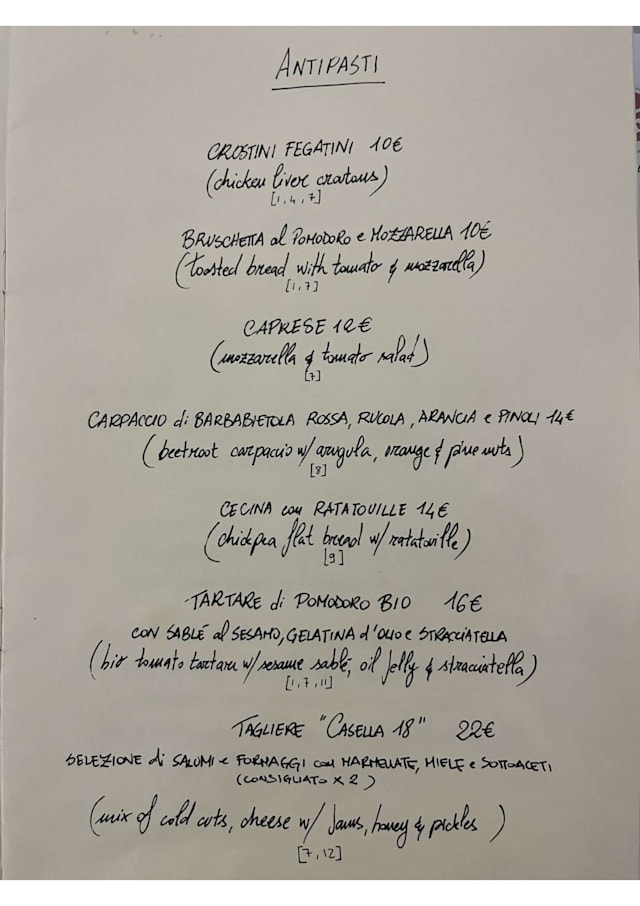 ANTIPASTI
CROSTINI FEGATINI 10€
(chicken liver cratons)
[1,4,7]
BRUSCHETTA al POMODORO e MOZZARELLA 10€
(toasted bread with tomato & mozzarella)
[1,7]
CAPRESE 12€
(mozzarella & tomato salad)
[7]
CARPACCIO di BARBABIETOLA ROSSA, RUCOLA, ARANCIA e PINOLI 14€
(beetroot carpaccio w/ arugula, orange & pine nuts)
[8]
CECINA con RATATOUILLE 14€
(chickpea flat bread w/ ratatouille)
[9]
TARTARE di POMODORO BIO 16€
CON SABLÉ al SESAMO, GELATINA d'OLIO e STRACCIATELLA
(bio tomato tartare w/ sesame sablé, oil jelly & stracciatella)
[1,7,11]
TAGLIERE "CASELLA 18" 22€
SELEZIONE di SALUMI e FORMAGGI con MARMELLATE, MIELE e SOTTOACETI
(CONSIGLIATO x 2)
(mix of cold cuts, cheese w/ Jams, honey & pickles)
[7,12]